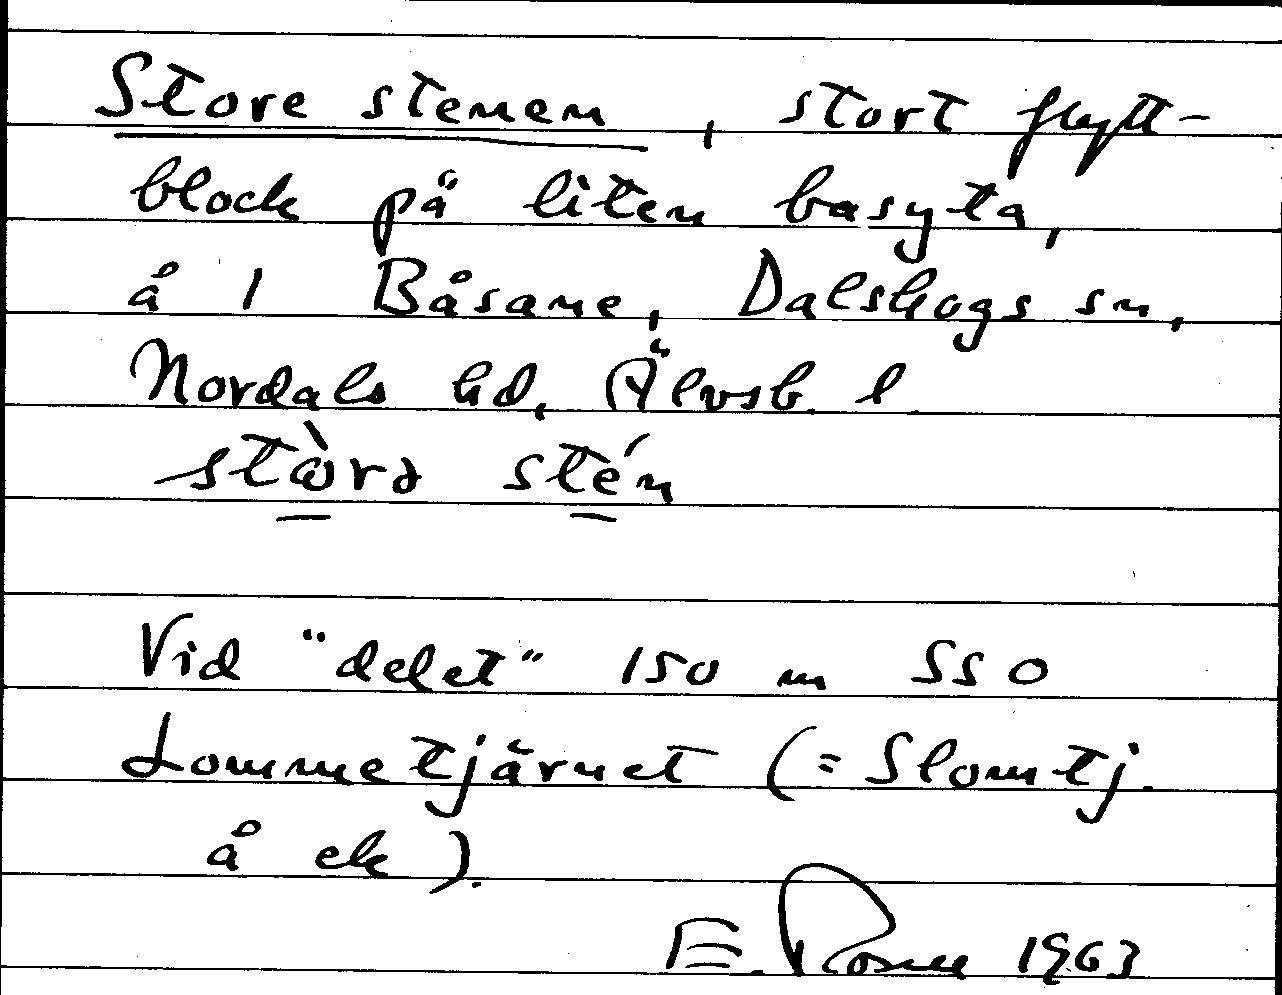 Store stenen, stort flytt-
block på liten basyta,
å 1 Båsane, Dalskogs sn,
Nordals hd, Älvsb. l
stòrə stén
Vid "delet" 150 m SSO
Lommetjärnet (= Slomtj.
å ek).
E. 1963